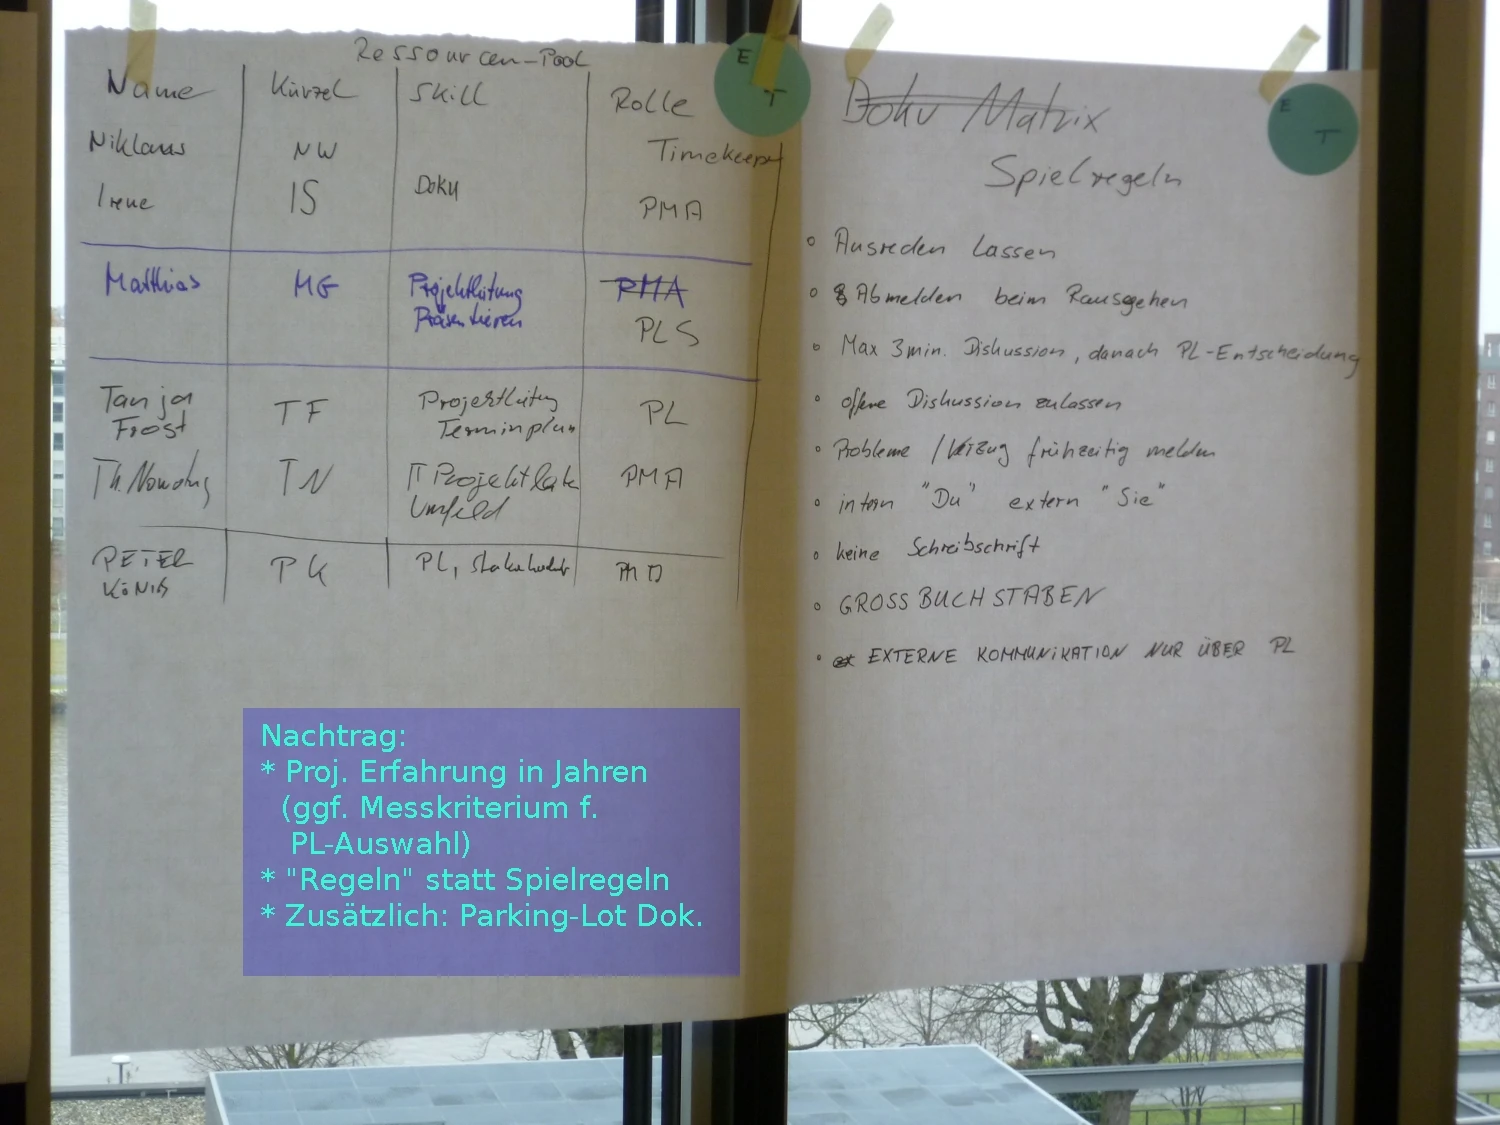 Ressourcen-Pool
Name Kürzel Skill Rolle
Niklaus NW Timekeeper
Irene IS Doku PMA
Matthias MG Projektleitung PMA
Präsentieren PLS
Tanja TF Projektleitung PL
Frost Terminplan
Th. TN IT Projektleit PMA
Umfeld
PETER PK PL, Stakeholder
KÖNIG
E
T
Doku Matrix
Spielregeln
E
T
Ausreden lassen
Abmelden beim Rausgehen
Max 3min. Diskussion, danach PL-Entscheidung
offene Diskussion zulassen
Probleme /Verzug frühzeitig melden
intern "Du" extern "Sie"
keine Schreibschrift
GROSSBUCHSTABEN
EXTERNE KOMMUNIKATION NUR ÜBER PL
Nachtrag:
* Proj. Erfahrung in Jahren
(ggf. Messkriterium f.
PL-Auswahl)
* "Regeln" statt Spielregeln
* Zusätzlich: Parking-Lot Dok.